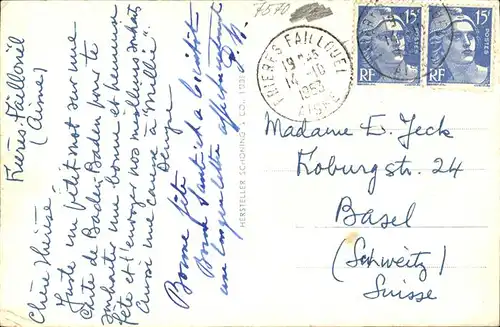 7570
Frières-Faillouël
(Aisne)
Chère Thérèse!
Juste un petit mot sur une
carte de Baden-Baden pour te
souhaiter une bonne et heureuse
fête et t'envoyer nos meilleurs souhaits
Aussi une caresse à "Millie"
Denyse
Bonne fête
Bonne Santé et à bientôt
une longue lettre
HERSTELLER SCHÖNING & CO., LÜBECK
FRIERES FAILLOUEL
14-10
1953
AISNE
15F
RF
15F
RF
Madame E. Jeck
Koburgstr. 24
Basel
(Schweitz)
Suisse